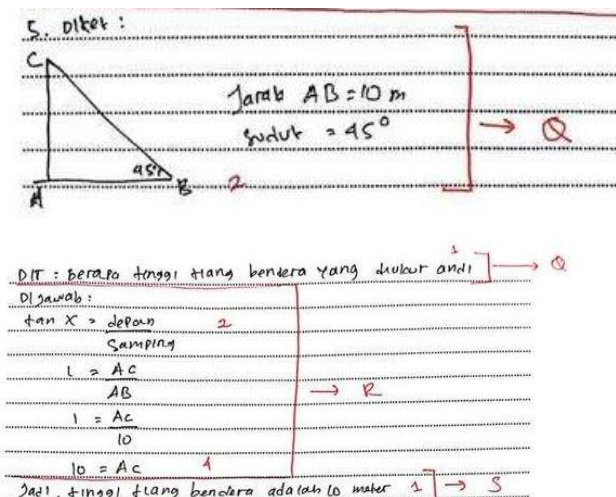 5. Diket :
C
Jarak AB = 10 m
Sudut = 45°
→ Q
45°
A
B
2
DIT : berapa tinggi tiang bendera yang diukur andi
1
→ Q
Dijawab :
tan x = depan
samping
2
1 = AC
AB
→ R
1 = AC
10
10 = AC
4
Jadi, tinggi tiang bendera adalah 10 meter
1
→ S